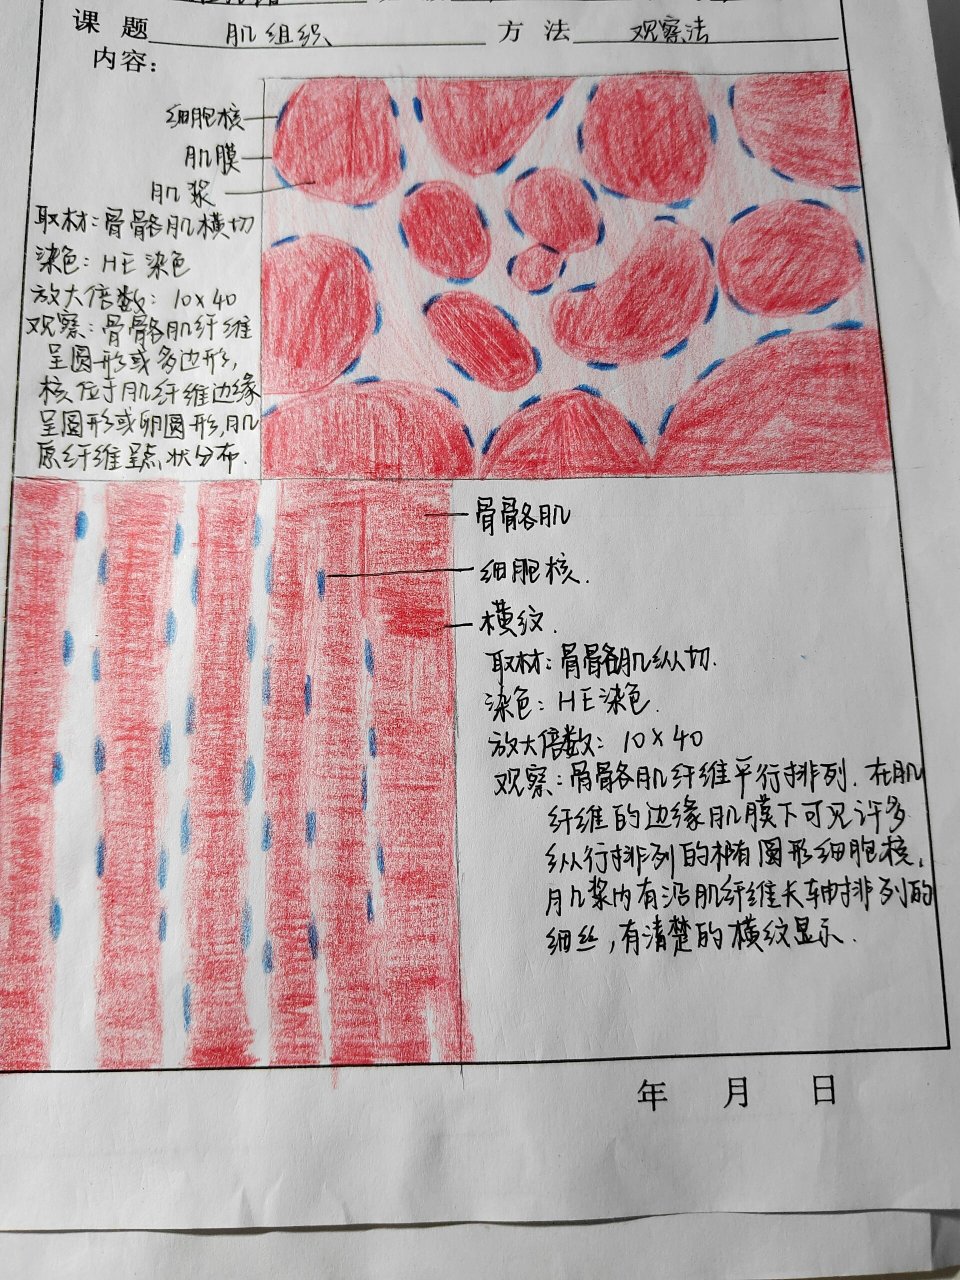 课 题 肌组织 方 法 观察法
内容：
细胞核
肌膜
肌浆
取材：骨骼肌横切
染色：HE染色
放大倍数：10×40
观察：骨骼肌纤维
呈圆形或多边形，
核位于肌纤维边缘
呈圆形或卵圆形，肌
原纤维呈点状分布．
骨骼肌
细胞核．
横纹．
取材：骨骼肌纵切．
染色：HE染色．
放大倍数：10×40
观察：骨骼肌纤维平行排列．在肌
纤维的边缘肌膜下可见许多
纵行排列的椭圆形细胞核，
肌浆内有沿肌纤维长轴排列的
细丝，有清楚的横纹显示．
年 月 日